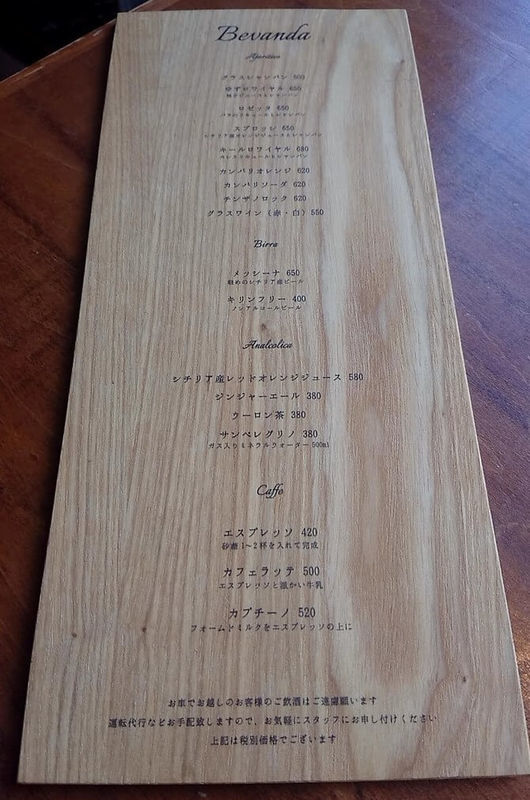 Bevanda
Aperitivo
グラスシャンパン 600
ゆずロワイヤル 650
ロゼッタ 650
スプロッシ 650
キールロワイヤル 680
カンパリオレンジ 620
カンパリソーダ 620
チンザノロック 620
グラスワイン（赤・白）550
Birra
メッシーナ 650
軽めのシチリア産ビール
キリンフリー 400
ノンアルコールビール
Analcolica
シチリア産レッドオレンジジュース 580
ジンジャーエール 380
ウーロン茶 380
サンペレグリノ 380
ガス入りミネラルウォーター500ml
Caffe
エスプレッソ 420
砂糖1〜2杯を入れて完成
カフェラッテ 500
エスプレッソと温かい牛乳
カプチーノ 520
フォームドミルクをエスプレッソの上に
お車でお越しのお客様のご飲酒はご遠慮願います
運転代行などお手配致しますので、お気軽にスタッフにお申し付けください
上記は税別価格でございます